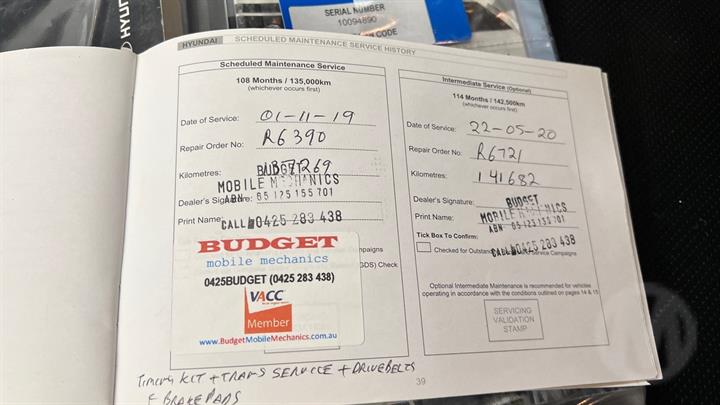 HYUN
SERIAL NUMBER
10094890
CODE
HYUNDAI SCHEDULED MAINTENANCE SERVICE HISTORY
Scheduled Maintenance Service
108 Months / 135,000km
(whichever occurs first)
Date of Service: 01-11-19
Repair Order No: R6390
Kilometres: 137269
BUDGET
MOBILE MECHANICS
Dealer's Signature:
ABN: 65 125 155 701
Print Name:
CALL 0425 283 438
BUDGET
mobile mechanics
0425BUDGET (0425 283 438)
VACC
Member
www.BudgetMobileMechanics.com.au
mpaigns
GDS) Check
Intermediate Service (Optional)
114 Months / 142,500km
(whichever occurs first)
Date of Service: 22-05-20
Repair Order No: R6721
Kilometres: 141682
Dealer's Signature:
BUDGET
Print Name:
MOBILE MECHANICS
ABN: 65 125 155 701
Tick Box To Confirm:
CALL 0425 283 438
Checked for Outstan Service Campaigns
Optional Intermediate Maintenance is recommended for vehicles
operating in accordance with the conditions outlined on pages 14 & 15
SERVICING
VALIDATION
STAMP
39
TIMING KIT + TRANS SERVICE + DRIVEBELTS
+ BRAKE PADS